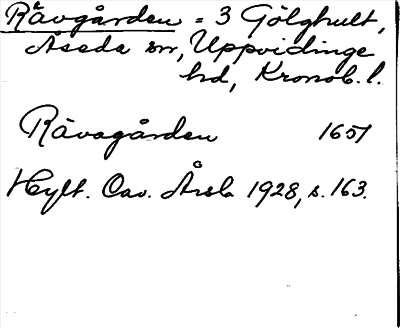 Råvgården = 3 Gölghult,
Åseda sn, Uppvidinge
hd, Kronob. l.
Råvagården 1651
Hylt. Cav. Årsb. 1928, s. 163.